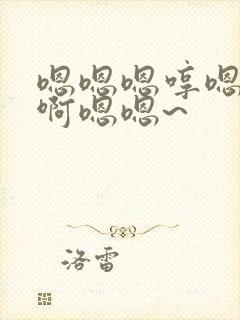 嗯嗯嗯哼嗯
啊嗯嗯~
洛雷